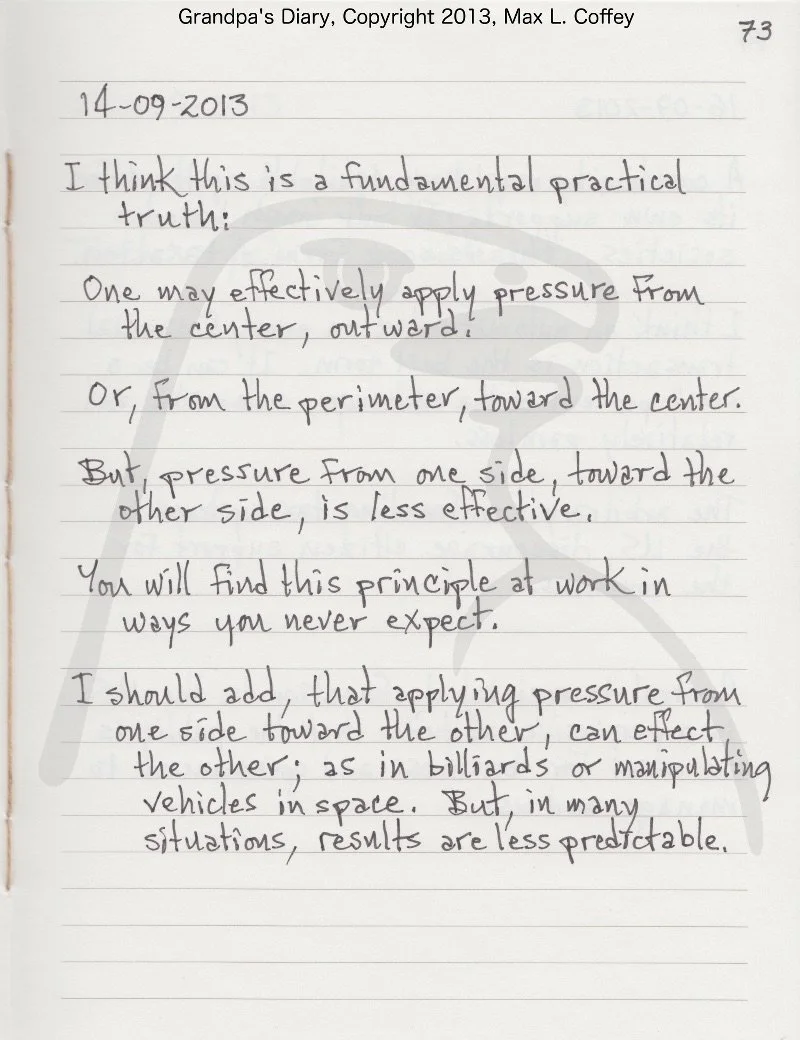 Grandpa's Diary, Copyright 2013, Max L. Coffey
73
14-09-2013
I think this is a fundamental practical
truth:
One may effectively apply pressure from
the center, outward.
Or, from the perimeter, toward the center.
But, pressure from one side, toward the
other side, is less effective.
You will find this principle at work in
ways you never expect.
I should add, that applying pressure from
one side toward the other, can effect
the other; as in billiards or manipulating
vehicles in space. But, in many
situations, results are less predictable.